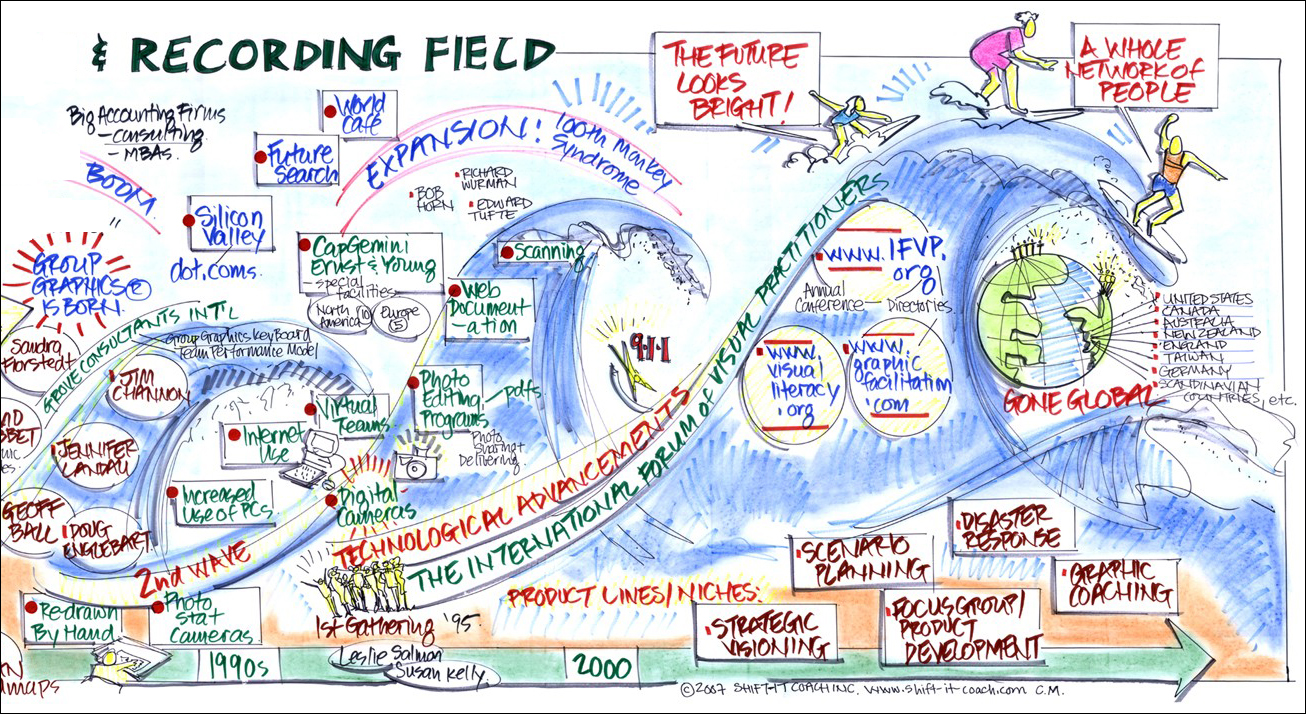 & RECORDING FIELD
Big Accounting Firms
- consulting
- MBAs.
BOOM
World
Cafe
Future
Search
Silicon
Valley
dot.coms.
EXPANSION!
100th Monkey
Syndrome
BOB
HORN
RICHARD
WURMAN
EDWARD
TUFTE
THE FUTURE
LOOKS
BRIGHT!
A WHOLE
NETWORK OF
PEOPLE
GROUP
GRAPHICS ®
IS BORN.
CapGemini
Ernst & Young
- special
facilities
North
America
Europe
(5)
Scanning
Web
Document
-ation
9-1-1
GROVE CONSULTANTS INT'L
Group Graphics Keyboard
Team Performance Model
Sandra
Florstedt
JIM
CHANNON
JENNIFER
LANDAU
GEOFF
BALL
DOUG
ENGLEBART
Virtual
Teams
Internet
Use
Increased
Use of PCs
Photo
Editing
Programs
pdfs
Photo
Sharing +
Delivering
Digital
Cameras
2nd WAVE
TECHNOLOGICAL ADVANCEMENTS
THE INTERNATIONAL FORUM OF VISUAL PRACTITIONERS
www.IFVP.
org
Annual
Conference
Directories
www.
visual
literacy
.org
www.
graphic
facilitation
.com
UNITED STATES
CANADA
AUSTRALIA
NEW ZEALAND
ENGLAND
TAIWAN
GERMANY
SCANDINAVIAN
COUNTRIES, etc.
GONE GLOBAL
Redrawn
By Hand
Photo
Stat
Cameras
1st Gathering '95.
Leslie Salmon
Susan Kelly.
PRODUCT LINES/NICHES:
STRATEGIC
VISIONING
SCENARIO
PLANNING
FOCUS GROUP/
PRODUCT
DEVELOPMENT
DISASTER
RESPONSE
GRAPHIC
COACHING
1990s
2000
©2007 SHIFT-IT COACH INC. www.shift-it-coach.com C.M.